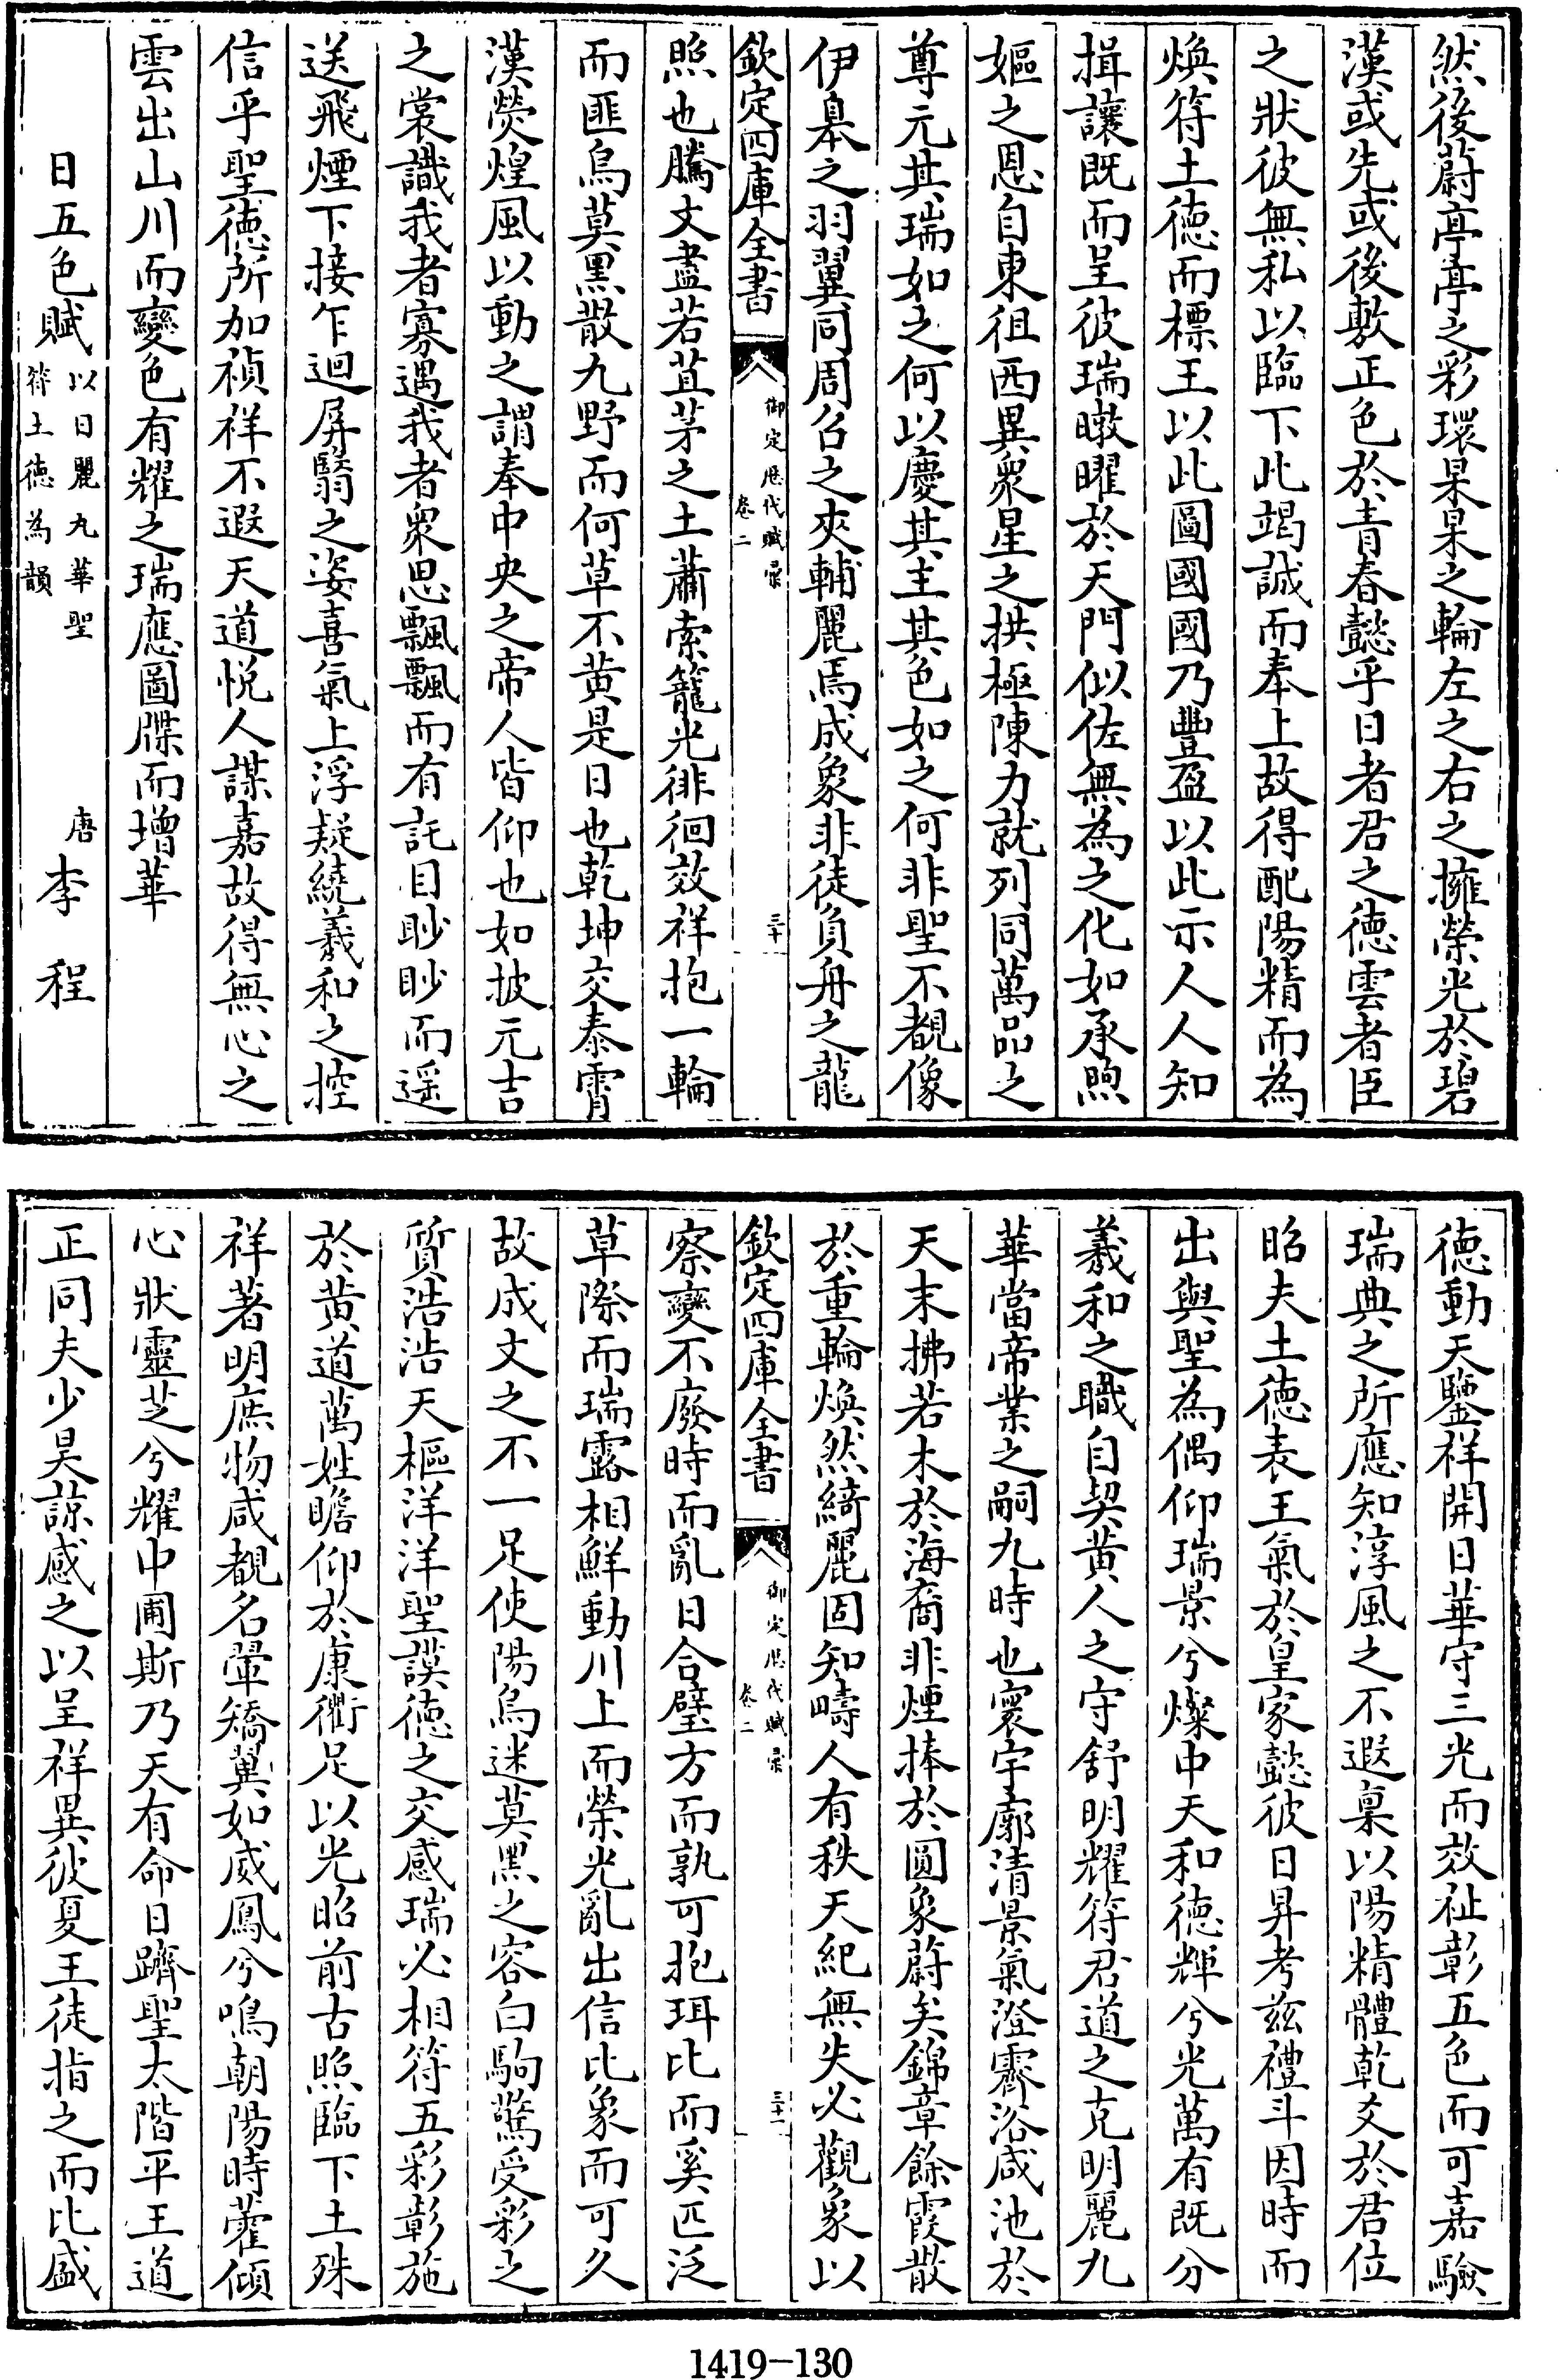 然後蔚亭亭之彩環杲杲之輪左之右之擁榮光於碧
漢或先或後敷正色於青春懿乎日者君之德雲者臣
之狀彼無私以臨下此竭誠而奉上故得配陽精而為
煥符土德而標王以此圖國國乃豐盈以此示人人知
揖讓既而呈彼瑞暾曜於天門似佐無為之化如承煦
嫗之恩自東徂西異衆星之拱極陳力就列同萬品之
尊元其瑞如之何以慶其主其色如之何非聖不覩像
伊臯之羽翼同周召之夾輔麗焉成象非徒負舟之龍
欽定四庫全書
御定歷代賦彙
卷二
三十
照也騰文盡若苴茅之土肅索籠光徘徊效祥抱一輪
而匪烏莫黒散九野而何草不黄是日也乾坤交泰霄
漢熒煌風以動之謂奉中央之帝人皆仰也如披元吉
之裳識我者寡遇我者衆思飄飄而有託目眇眇而遥
送飛煙下接乍迴屏翳之姿喜氣上浮疑繞羲和之控
信乎聖德所加禎祥不遐天道悅人謀嘉故得無心之
雲出山川而變色有耀之瑞應圖牒而增華
日五色賦
以日麗九華聖
符土德為韻
唐
李程
德動天鑒祥開日華守三光而效祉彰五色而可嘉驗
瑞典之所應知淳風之不遐稟以陽精體乾爻於君位
昭夫土德表王氣於皇家懿彼日昇考茲禮斗因時而
出與聖為偶仰瑞景兮燦中天和德輝兮光萬有既分
羲和之職自契黄人之守舒明耀符君道之克明麗九
華當帝業之嗣九時也寰宇廓清景氣澄霽浴咸池於
天末拂若木於海裔非煙捧於圓象蔚矣錦章餘霞散
於重輪煥然綺麗固知疇人有秩天紀無失必觀象以
欽定四庫全書
御定歷代賦彙
卷二
三十一
察變不廢時而亂日合璧方而孰可抱珥比而奚匹泛
草際而瑞露相鮮動川上而榮光亂出信比象而可久
故成文之不一足使陽烏迷莫黑之容白駒驚受彩之
質浩浩天樞洋洋聖謨德之交感瑞必相符五彩彰施
於黄道萬姓瞻仰於康衢足以光昭前古照臨下土殊
祥著明庶物咸覩名翬矯翼如威鳳兮鳴朝陽時藿傾
心狀靈芝兮耀中圃斯乃天有命日躋聖太階平王道
正同夫少昊諒感之以呈祥異彼夏王徒指之而比盛
1419-130